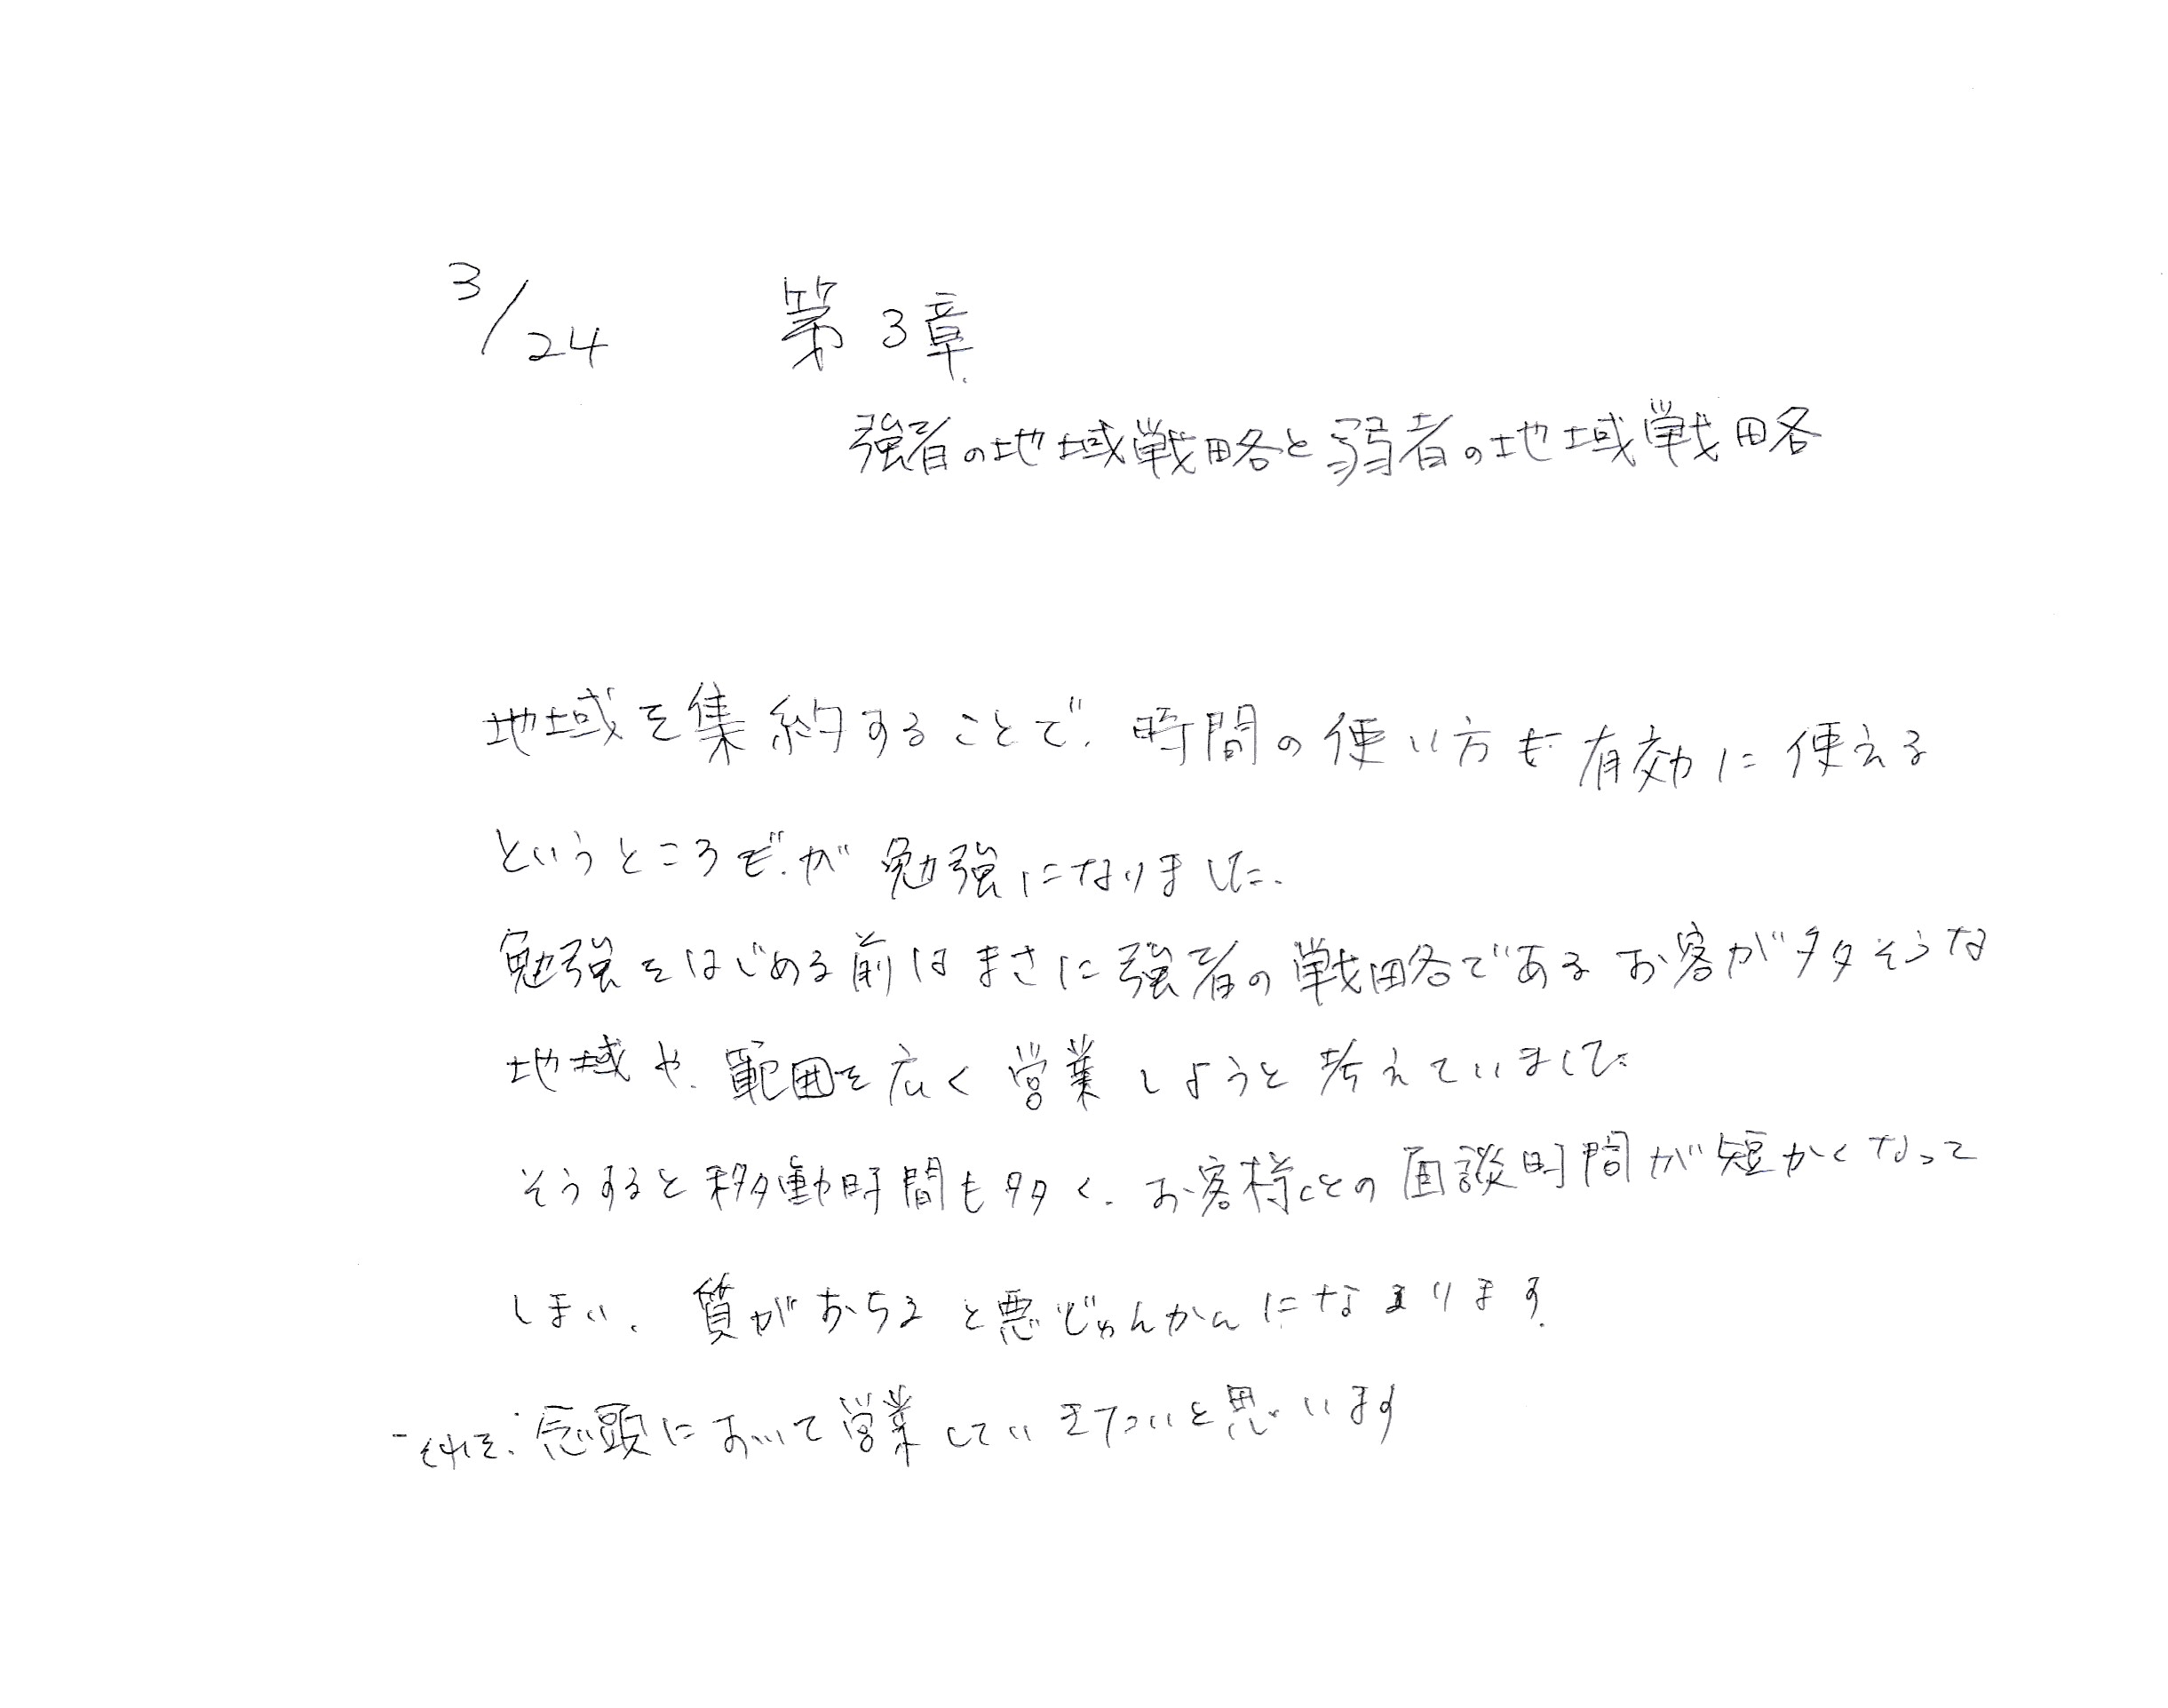 3/24 第3章
強者の地域戦略と弱者の地域戦略
地域を集約することで、時間の使い方も有効に使える
というところが勉強になりました。
勉強をはじめる前はまさに強者の戦略であるお客が多そうな
地域や、範囲を広く営業しようと考えていました
そうすると移動時間も多く、お客様との面談時間が短かくなって
しまい、質がおちると悪じゅんかんになります。
それを念頭において営業していきたいと思います